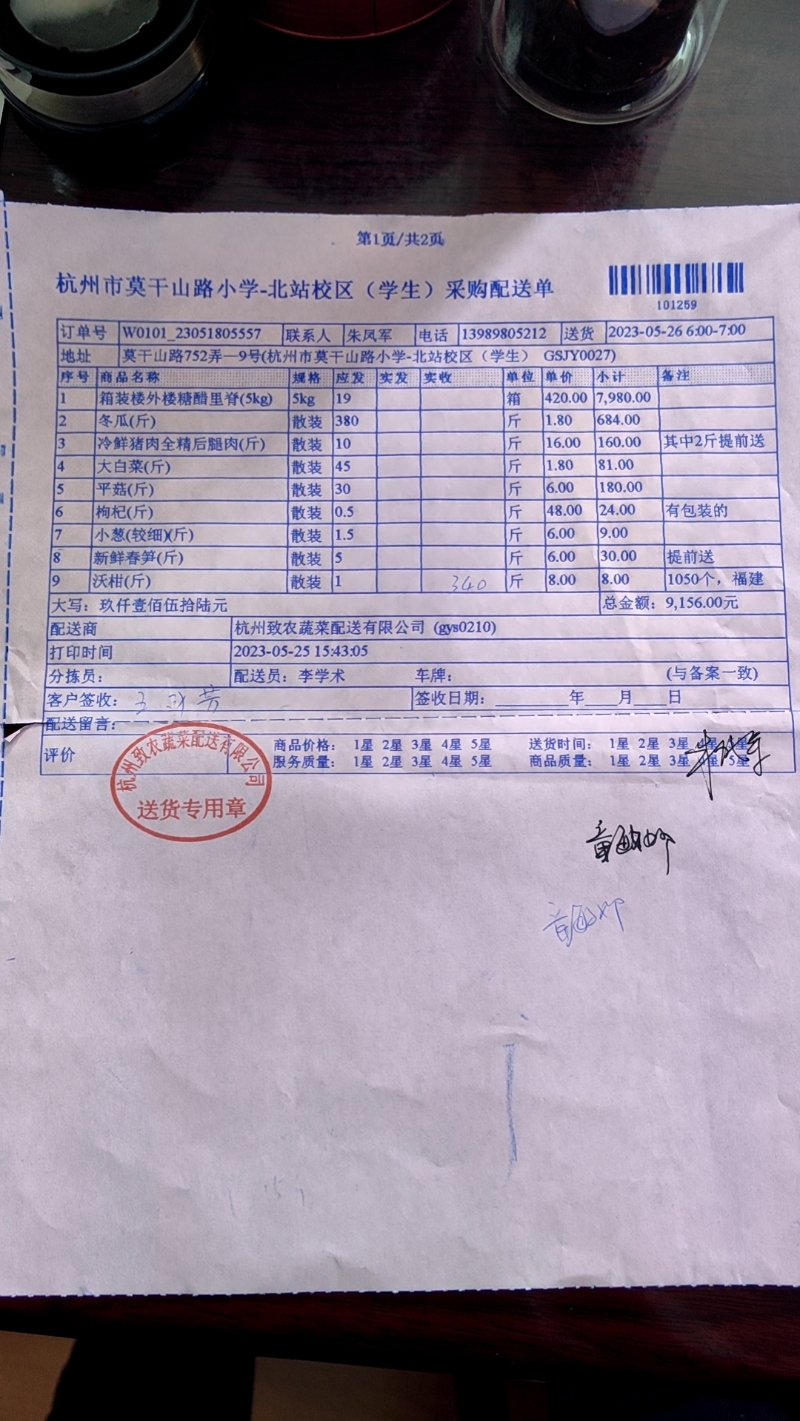 第1页/共2页
杭州市莫干山路小学-北站校区（学生）采购配送单
101259
订单号 W0101_23051805557 联系人 朱凤军 电话 13989805212 送货 2023-05-26 6:00-7:00
地址 莫干山路752弄—9号(杭州市莫干山路小学-北站校区（学生） GSJY0027)
序号 商品名称 规格 应发 实发 实收 单位 单价 小计 备注
1 箱装楼外楼糖醋里脊(5kg) 5kg 19 箱 420.00 7,980.00
2 冬瓜(斤) 散装 380 斤 1.80 684.00
3 冷鲜猪肉全精后腿肉(斤) 散装 10 斤 16.00 160.00 其中2斤提前送
4 大白菜(斤) 散装 45 斤 1.80 81.00
5 平菇(斤) 散装 30 斤 6.00 180.00
6 枸杞(斤) 散装 0.5 斤 48.00 24.00 有包装的
7 小葱(较细)(斤) 散装 1.5 斤 6.00 9.00
8 新鲜春笋(斤) 散装 5 斤 6.00 30.00 提前送
9 沃柑(斤) 散装 1 340 斤 8.00 8.00 1050个，福建
大写：玖仟壹佰伍拾陆元 总金额：9,156.00元
配送商 杭州致农蔬菜配送有限公司 (gys0210)
打印时间 2023-05-25 15:43:05
分拣员： 配送员：李学术 车牌： (与备案一致)
客户签收： 签收日期：______年___月___日
配送留言：
评价 商品价格： 1星 2星 3星 4星 5星 送货时间： 1星 2星 3星 4星 5星
服务质量： 1星 2星 3星 4星 5星 商品质量： 1星 2星 3星 4星 5星
杭州致农蔬菜配送有限公司
送货专用章